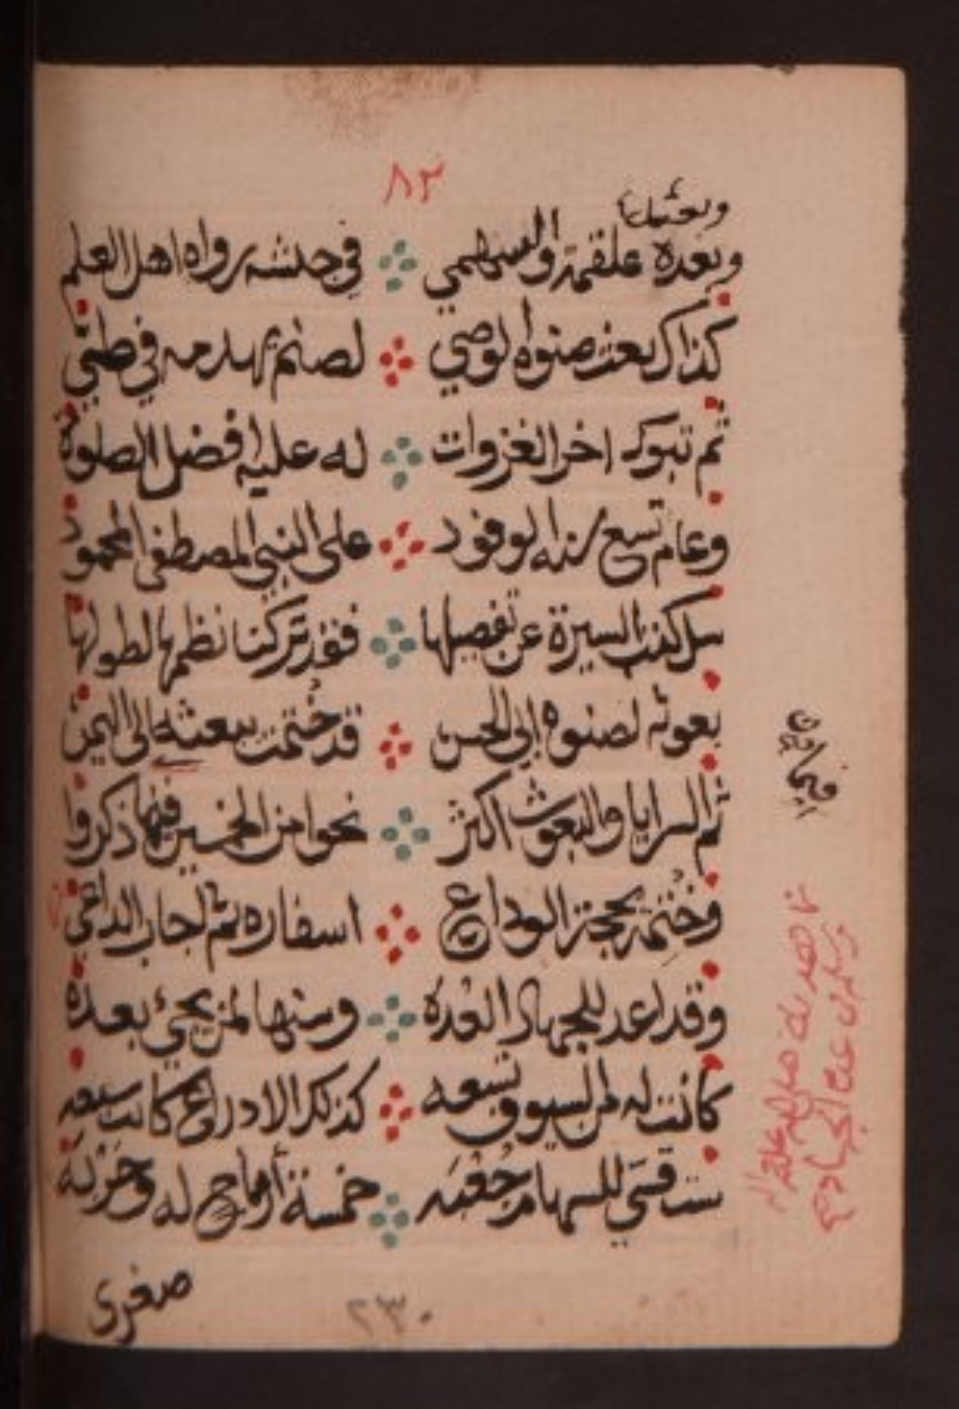 ٨٢
وبعثها
وبعده علقمة والسهمي في جيشه رواه اهل العلم
كذاك بعث صنوه الوصي لصنم يهدمه في طيّ
ثم تبوك اخر الغزوات له عليه افضل الصلوة
وعام تسع سنة الوفود على النبي المصطفى المحمود
سل كتب السيرة عن تفصيلها فقد تركنا نظمها لطولها
بعوثه لصنوه ابي الحسن قد خُتمت ببعثه الى اليمن
ثم السرايا والبعوث اكثر نحوا من الخمسين فيما ذكروا
وخُتمة بحجة الوداع اسفاره ثم اجاب الداعي
وقد اعد للجهاد العده وسنها لمن يجئ بعده
كانت له من السيوف تسعه كذلك الادراع كانت سبعه
ست قسَي للسهام جُعْبَه خمسة أرماح له وحَرْبَة
صغرى
٢٣٠